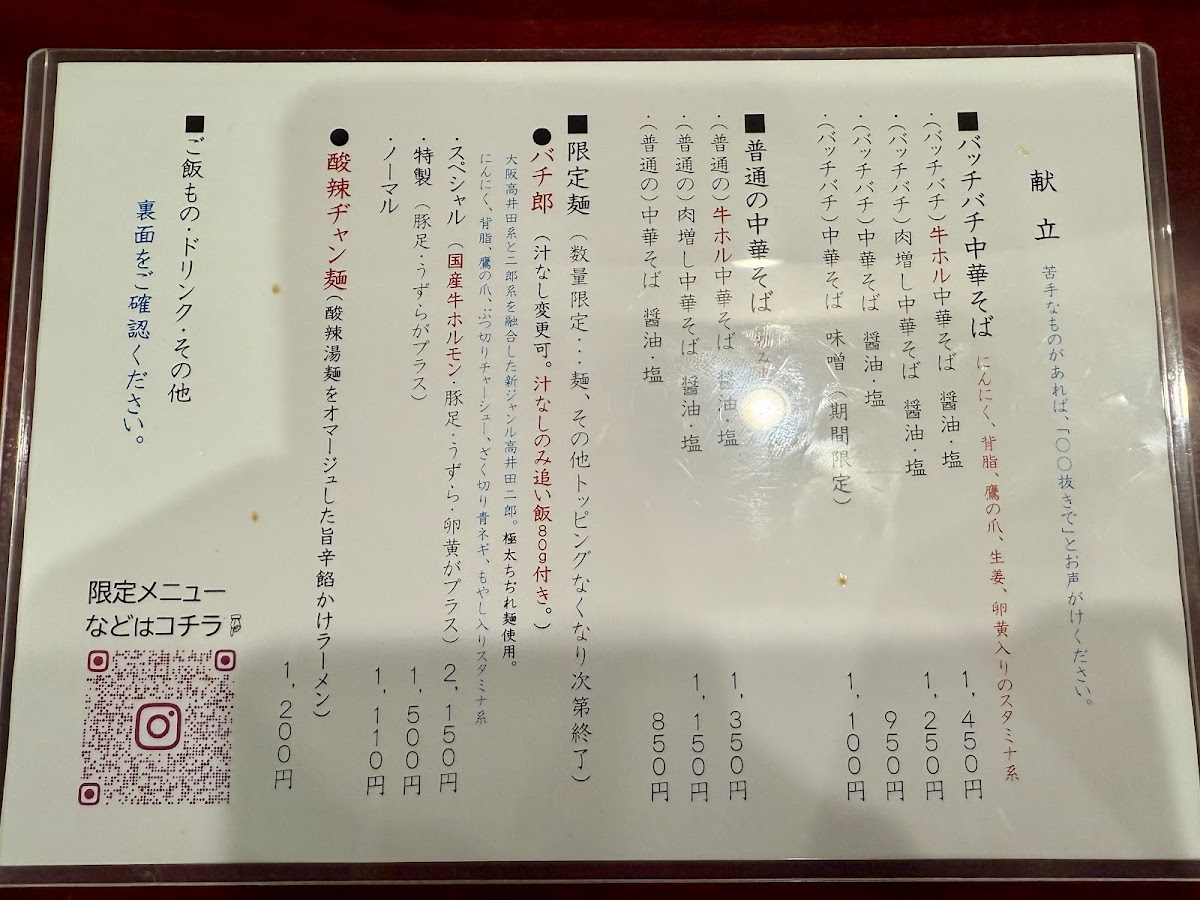 献立　苦手なものがあれば、「〇〇抜きで」とお声がけください。
■バッチバチ中華そば　にんにく、背脂、鷹の爪、生姜、卵黄入りのスタミナ系
・(バッチバチ)牛ホル中華そば　醤油・塩　1,450円
・(バッチバチ)肉増し中華そば　醤油・塩　1,250円
・(バッチバチ)中華そば　醤油・塩　950円
・(バッチバチ)中華そば　味噌（期間限定）　1,100円
■普通の中華そば
・(普通の)牛ホル中華そば　醤油・塩　1,350円
・(普通の)肉増し中華そば　醤油・塩　1,150円
・(普通の)中華そば　醤油・塩　850円
■限定麺（数量限定…麺、その他トッピングなくなり次第終了）
●バチ郎（汁なし変更可。汁なしのみ追い飯80g付き。）
大阪高井田系と二郎系を融合した新ジャンル高井田二郎。極太ちぢれ麺使用。
にんにく、背脂、鷹の爪、ぶつ切りチャーシュー、ざく切り青ネギ、もやし入りスタミナ系
・スペシャル（国産牛ホルモン・豚足・うずら・卵黄がプラス）2,150円
・特製（豚足・うずらがプラス）　1,500円
・ノーマル　1,110円
●酸辣ヂャン麺(酸辣湯麺をオマージュした旨辛餡かけラーメン)　1,200円
■ご飯もの・ドリンク・その他
裏面をご確認ください。
限定メニュー
などはコチラ